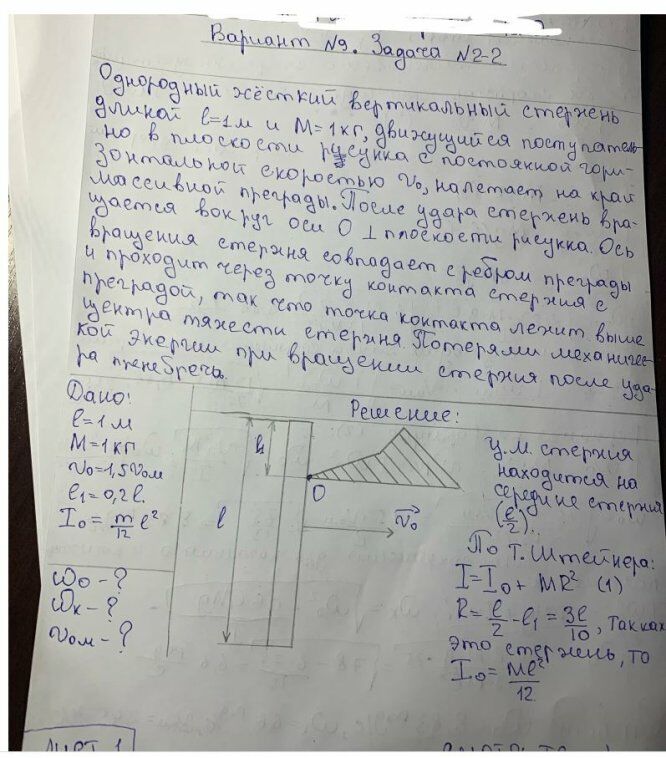 Вариант №9. Задача №2-2
Однородный жёсткий вертикальный стержень
длиной l=1м и M=1кг, движущийся поступатель-
но в плоскости рисунка с постоянной гори-
зонтальной скоростью v₀, налетает на край
массивной преграды. После удара стержень вра-
щается вокруг оси O ⊥ плоскости рисунка. Ось
вращения стержня совпадает с ребром преграды
и проходит через точку контакта стержня с
преградой, так что точка контакта лежит выше
центра тяжести стержня. Потерями механичес-
кой энергии при вращении стержня после уда-
ра пренебречь.
Дано:
l=1м
M=1кг
v₀=1,5v₀м
l₁=0,2l.
I₀=m/12 l²
ω₀-?
ωк-?
v₀м-?
Решение:
l₁
l
O
v₀
Ц.М. стержня
находится на
середине стержня
(l/2).
По Т. Штейнера:
I=I₀+MR² (1)
R=l/2-l₁=3l/10, так как
это стержень, то
I₀=Ml²/12
ЛИСТ 1